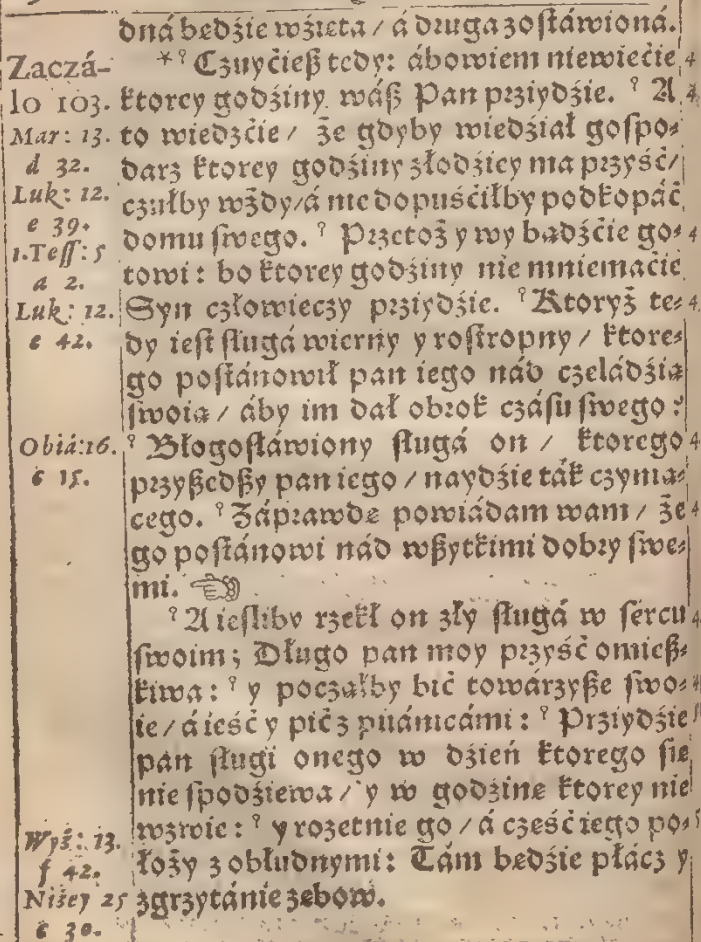 dná będźie wźięta / á druga zostáwioná.
Zaczá-
lo 103.
Mar: 13.
d 32.
Luk: 12.
e 39.
1.Teſſ: 5
a 2.
Luk: 12.
e 42.
Obiá:16.
c 15.
Wyż: 13.
f 42.
Niżey 25
c 30.
* Czuyćieß tedy: ábowiem niewiećie
ktorey godźiny wáß Pan przyidźie. A
to wiedzćie / że gdyby wiedźiał goſpo-
darz ktorey godźiny złodźiey ma przyśc/
czułby wżdy/á nie dopuśćiłby podkopáć
domu ſwego. Przetoż y wy bądźćie go-
towi: bo ktorey godźiny nie mniemaćie
Syn człowieczy przyidźie. Ktoryż te-
dy ieſt ſługá wierny y roſtropny / ktore-
go poſtánowił pan iego nád czeládźią
ſwoią / áby im dał obrok czáſu ſwego?
Błogoſłáwiony ſługá on / ktorego
przyßedßy pan iego / naydźie ták czynią-
cego. Záprawdę powiádam wam / że
go poſtánowi nád wßytkimi dobry ſwe-
mi. ☜
A ieſliby rzekł on zły ſługá w ſercu
ſwoim; Długo pan moy przyśc omieß-
kiwa: y począłby bić towárzyße ſwo-
ie/á ieść y pić z piiánicámi: Prziydźie
pan ſługi onego w dźień ktorego ſię
nie ſpodźiewa / y w godźinę ktorey nie
wzwie: y rozetnie go / á cześć iego po-
łoży z obłudnymi: Tám będźie płácz y
zgrzytánie zębow.